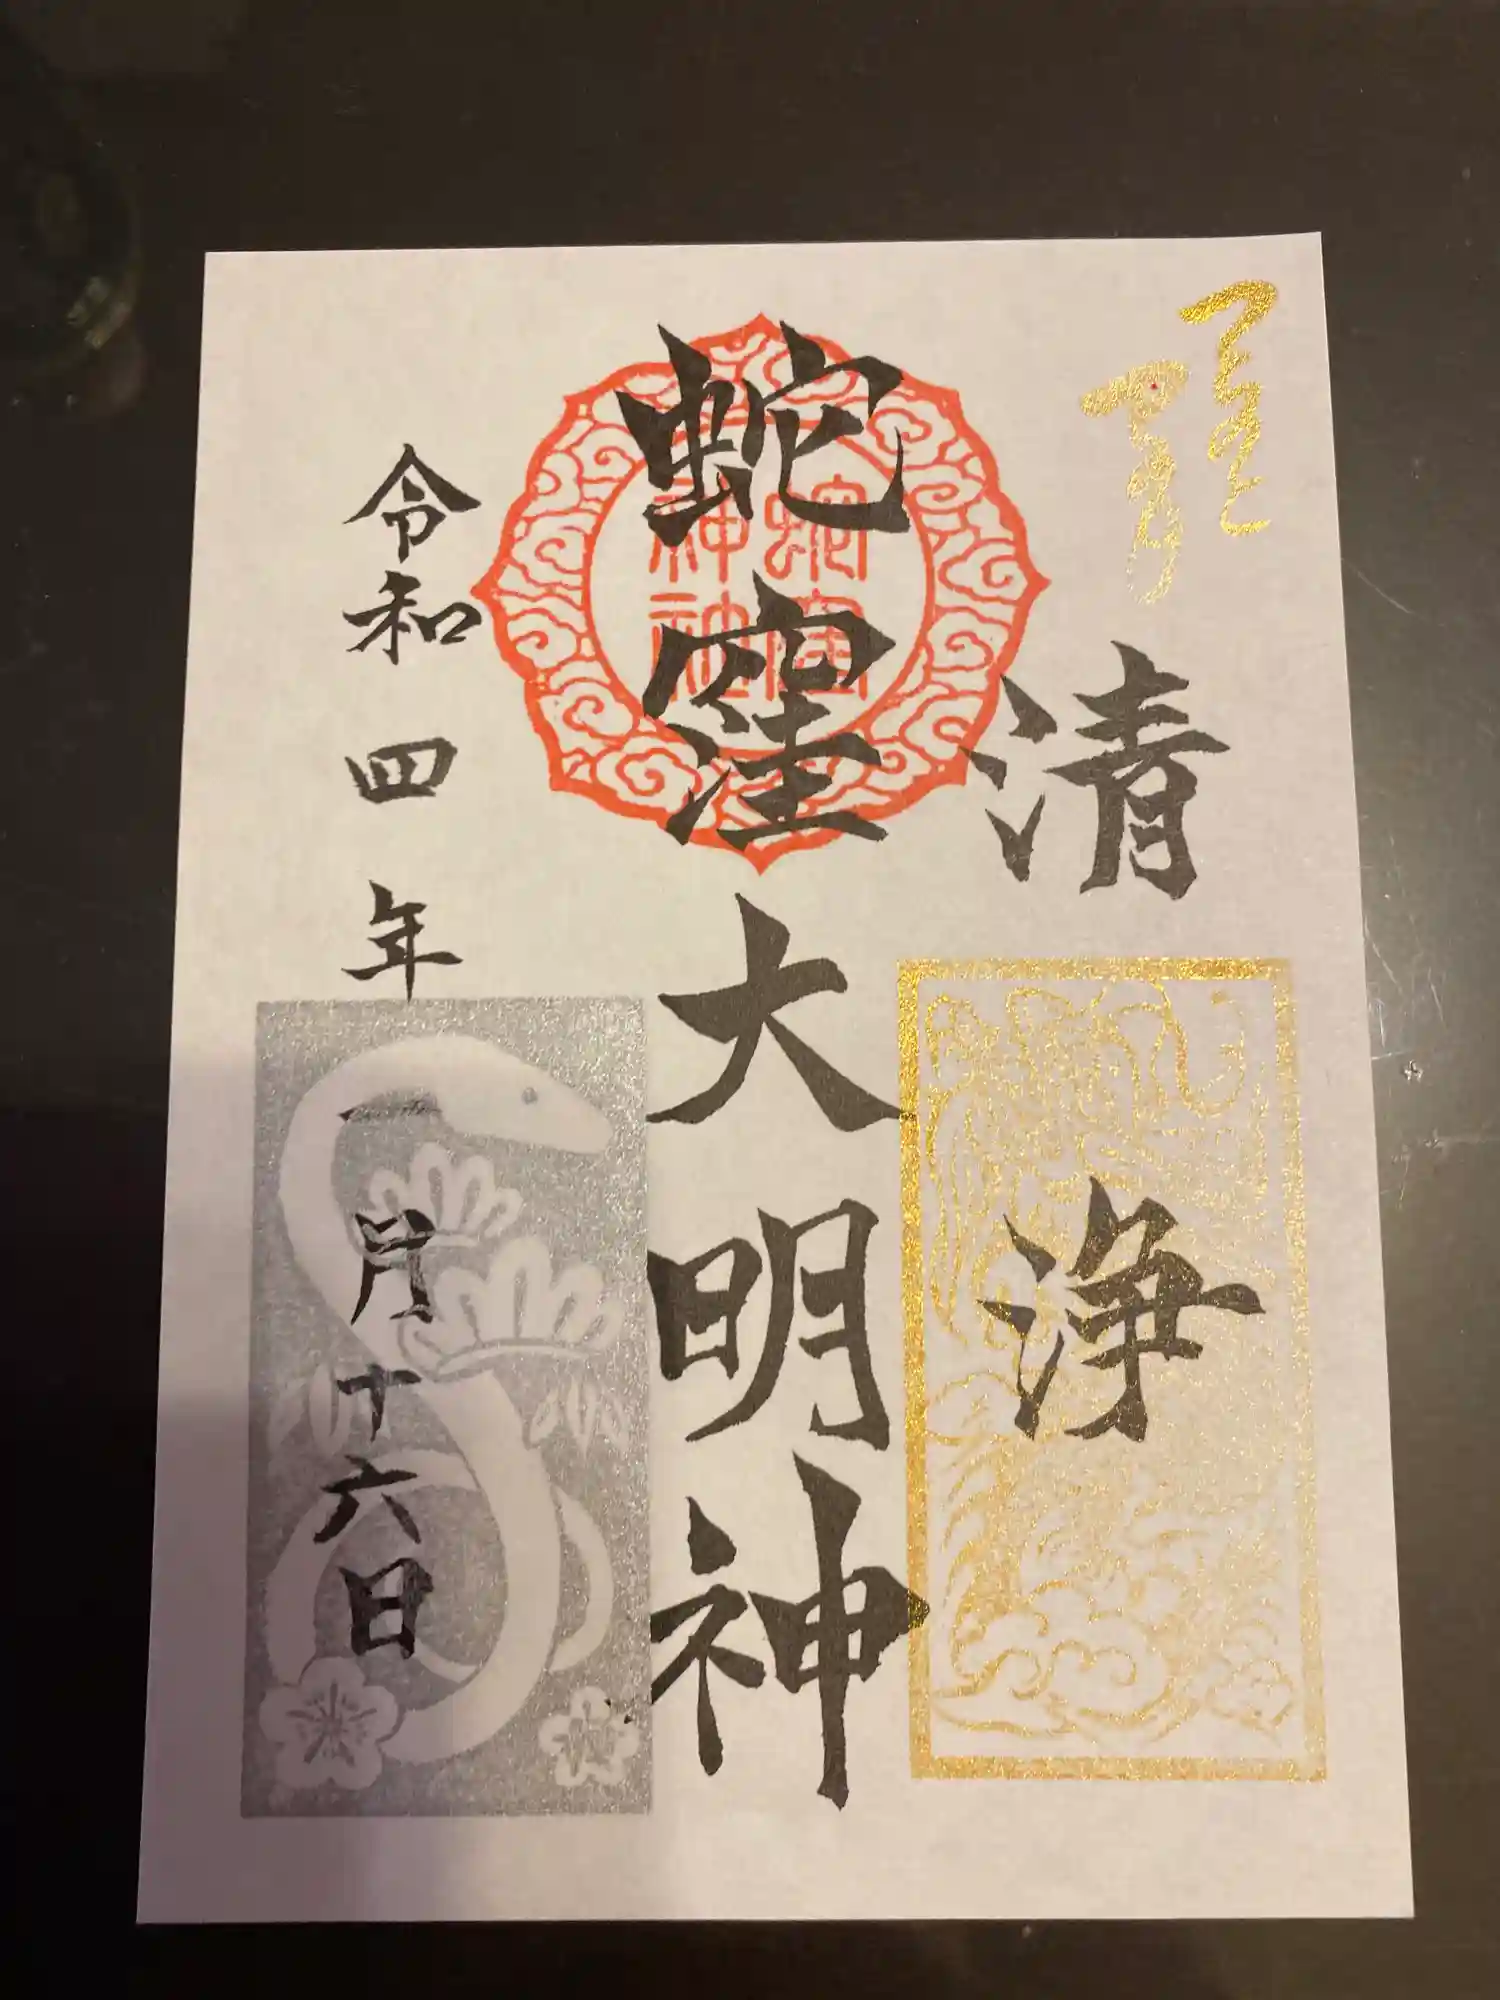 清浄
蛇窪大明神
蛇窪
神社
令和四年一月十六日